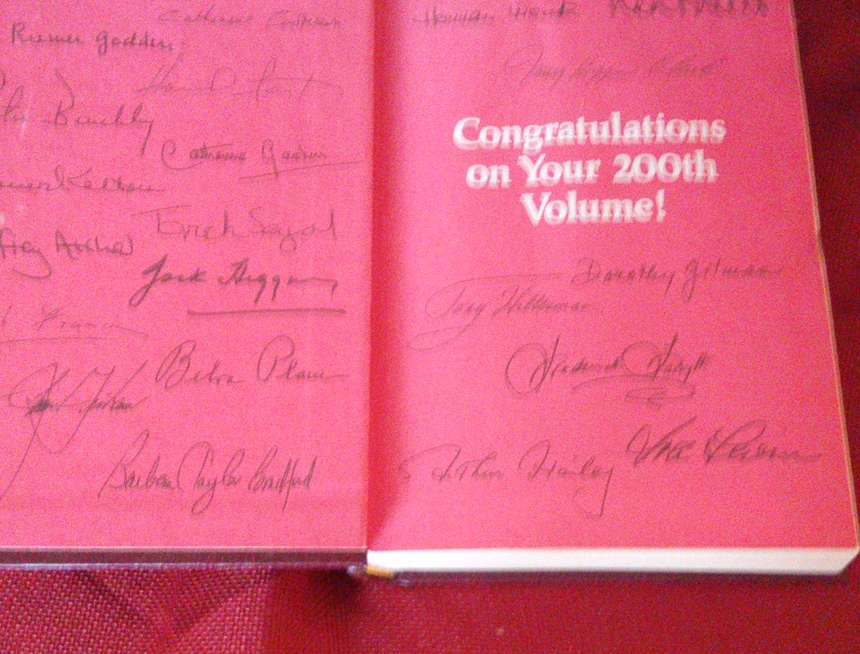 Catherine Cookson
Rumer Godden
Howard Fast
Benchley
Catherine Gaskin
Erich Segal
Archer
Jack Higgins
Francis
Belva Plain
Barbara Taylor Bradford
Herman Wouk
Mary Higgins Clark
Congratulations
on Your 200th
Volume!
Dorothy Gilman
Tony Hillerman
Frederick Forsyth
Arthur Hailey